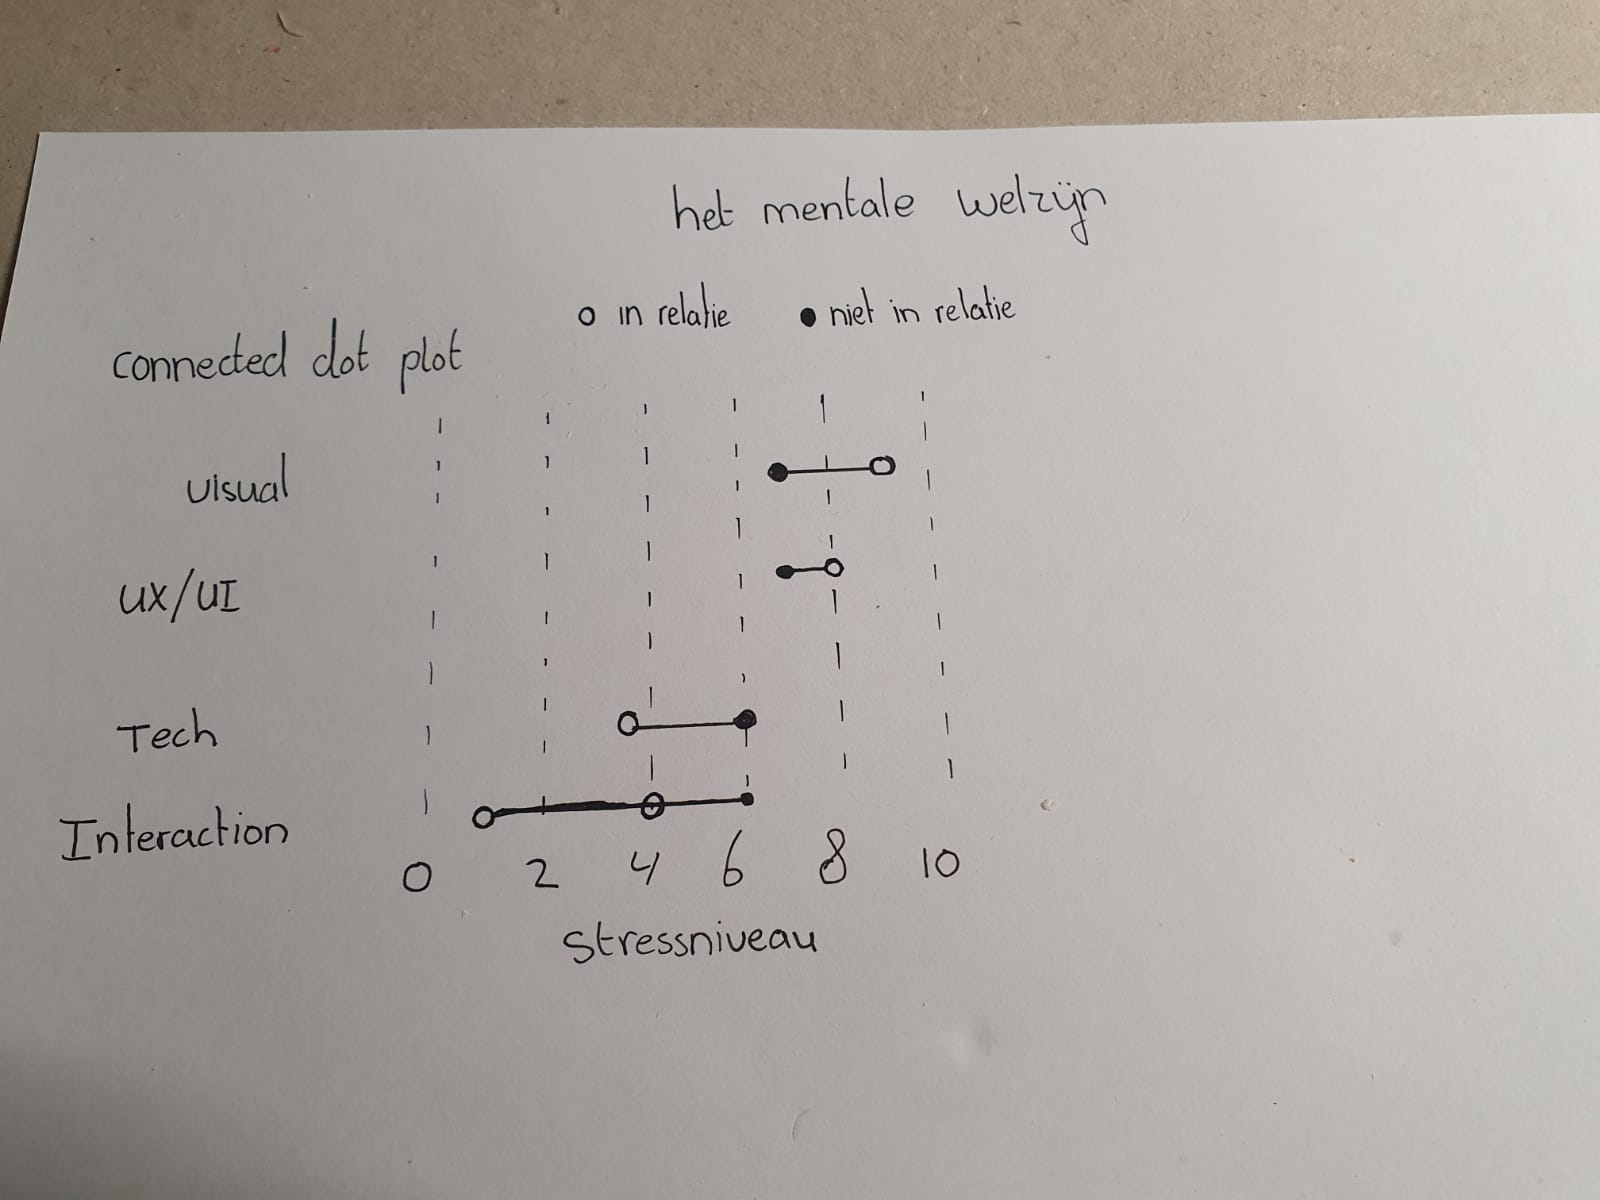 het mentale welzijn
o in relatie ● niet in relatie
connected dot plot
visual
UX/UI
Tech
Interaction
0 2 4 6 8 10
Stressniveau